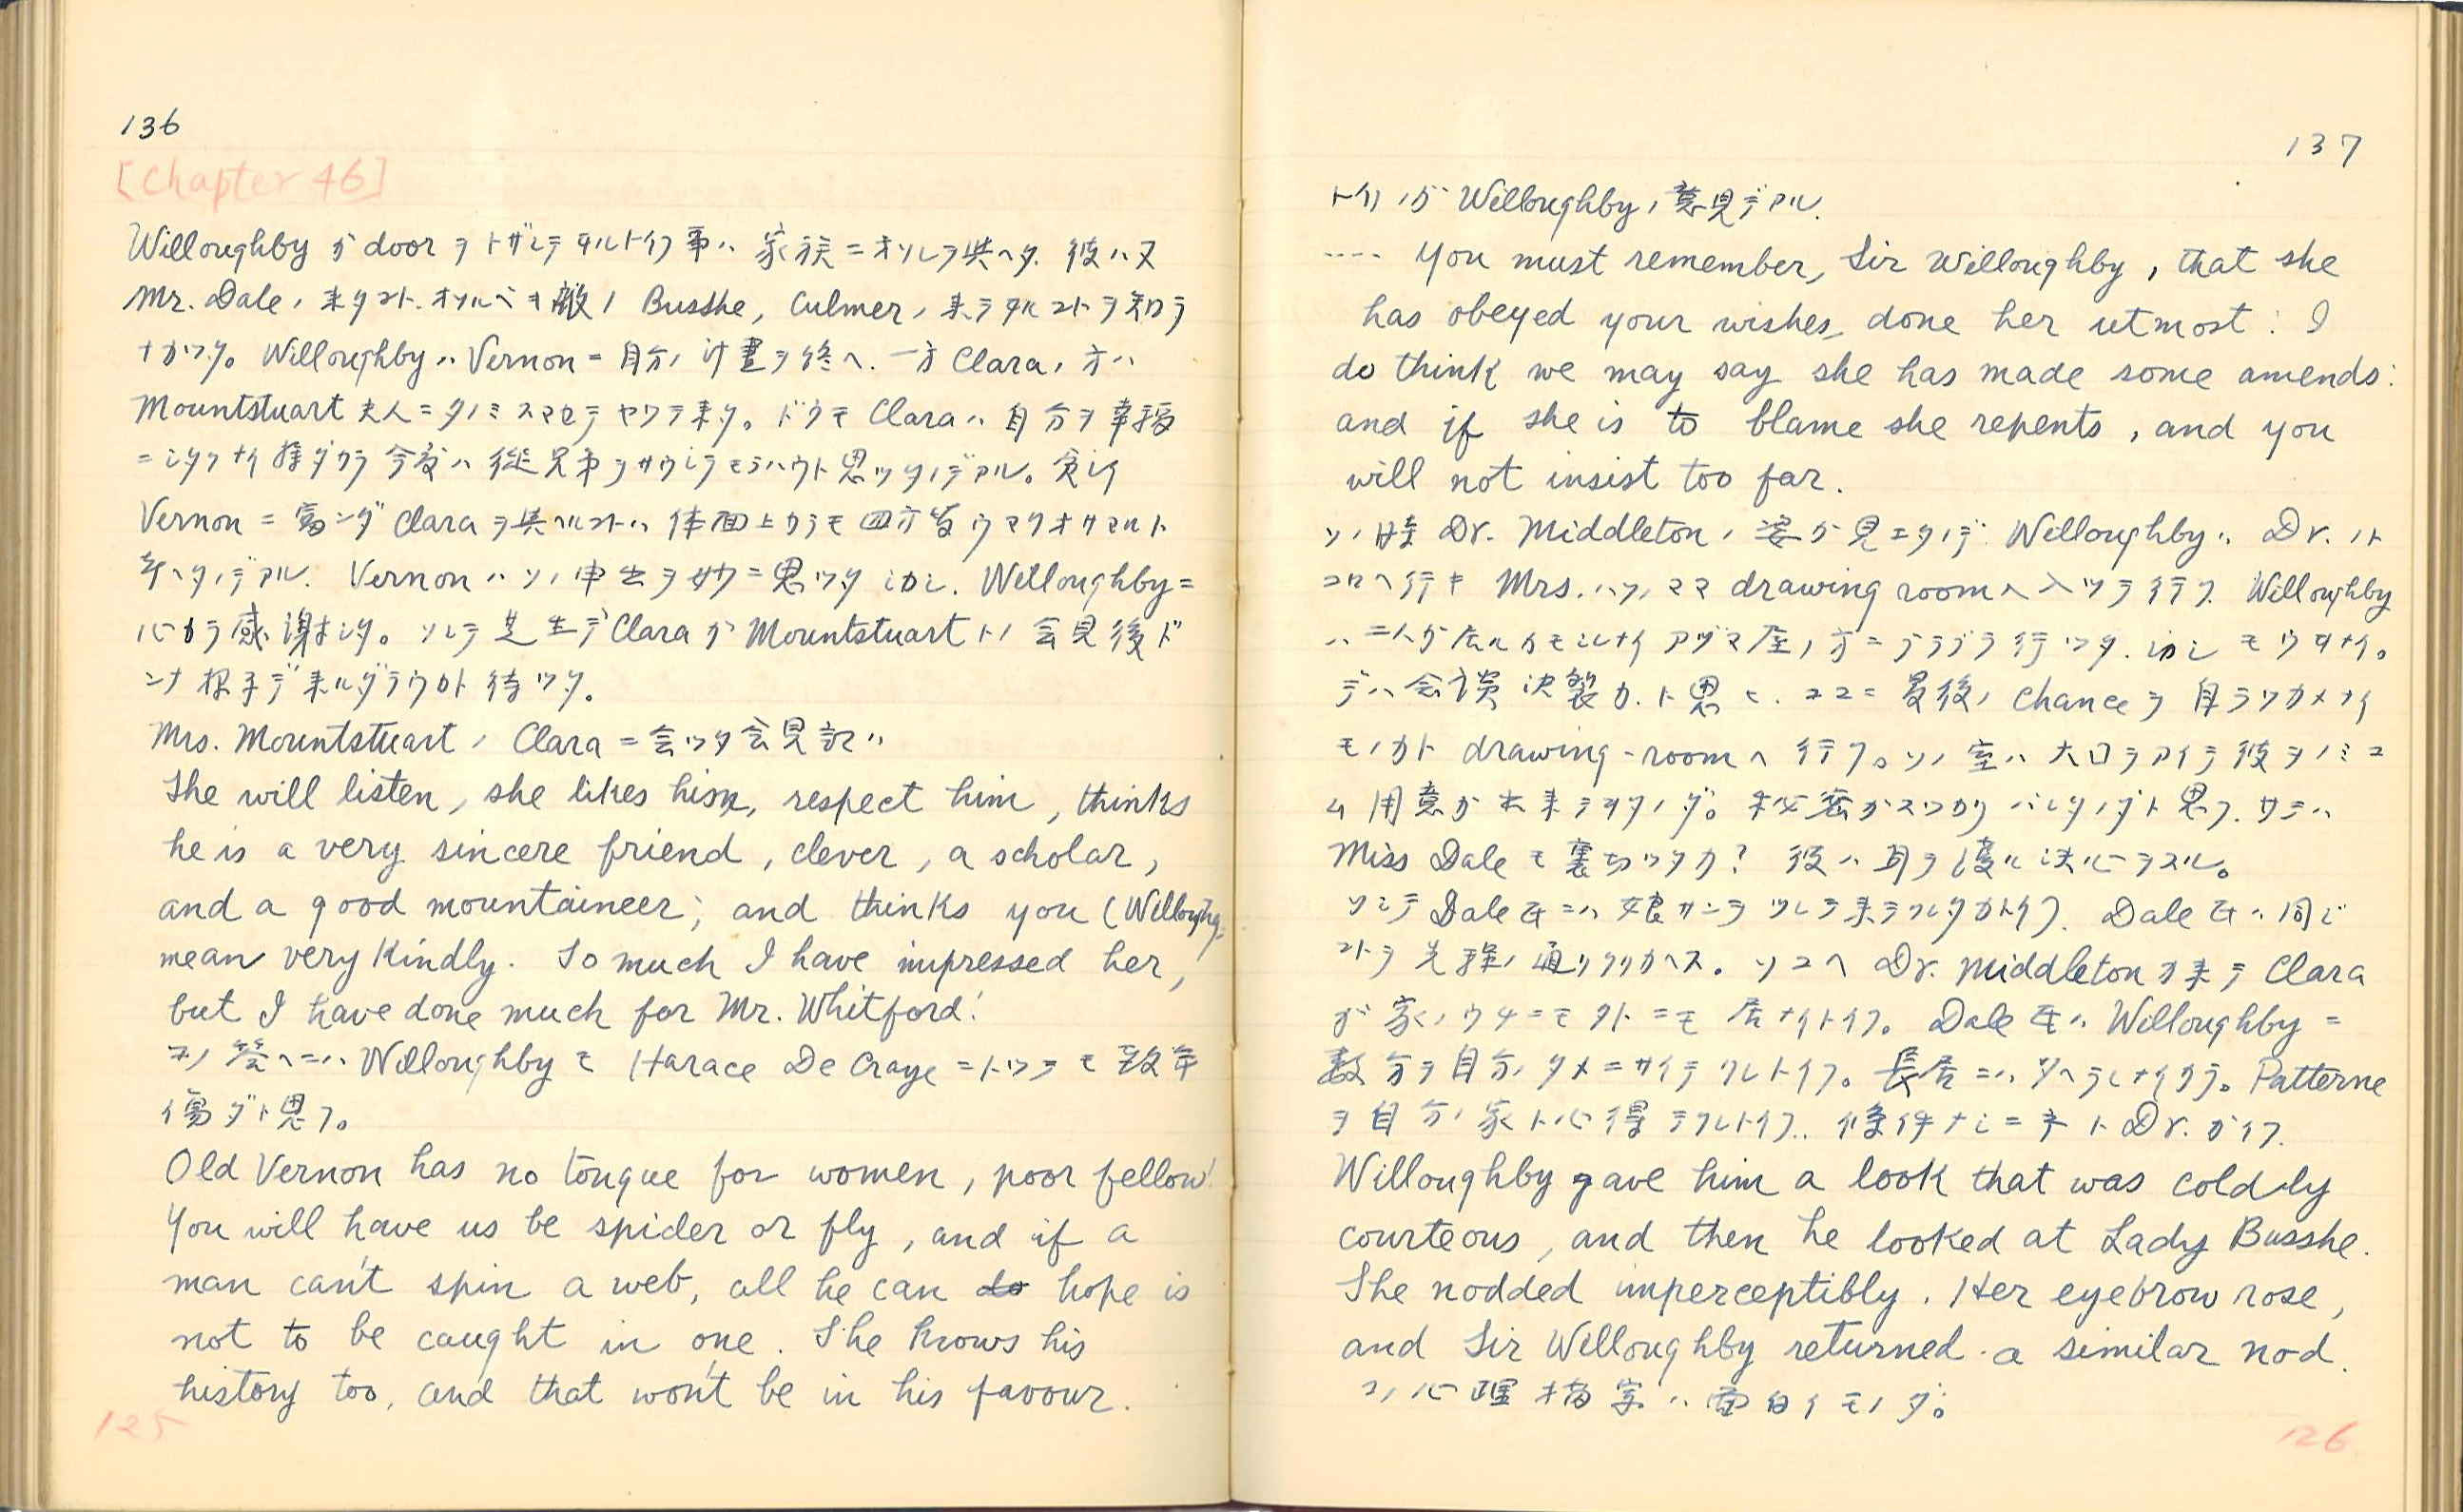 136
[Chapter 46]
Willoughby ガ door ヲ トザシテヰルトイフ事ハ 家族ニオソレヲ与ヘタ. 彼ハ又
Mr. Dale ノ 来タコト. オソルベキ敵ノ Busshe, Culmer ノ 来テヰルコトヲ知ラ
ナカツタ。 Willoughby ハ Vernon ニ 自分ノ 計畫ヲ終ヘ. 一方 Clara ノ 方ハ
Mountstuart 夫人ニタノミスマセテ ヤツテ来タ。 ドウモ Clara ハ 自分ヲ 幸福
ニシタクナイ様ダカラ 今度ハ 従兄弟ヲサウシテモラハウト思ツタノデアル。 貧シイ
Vernon ニ 富ンダ Clara ヲ与ヘルコトハ 体面上カラモ 四方皆ウマクオサマルト
考ヘタノデアル. Vernon ハ ソノ申出ヲ妙ニ思ツタ シカシ. Willoughby ニ
心カラ感謝シタ。 ソシテ 芝生デ Clara ガ Mountstuart トノ 会見後ド
ンナ様子デ来ルダラウカト 待ツタ。
Mrs. Mountstuart ノ Clara ニ会ツタ会見記ハ
She will listen, she likes him, respect him, thinks
he is a very sincere friend, clever, a scholar,
and a good mountaineer; and thinks you (Willoughby
mean very kindly. So much I have impressed her,
but I have done much for Mr. Whitford!
コノ 答ヘニハ Willoughby モ Harace De Craye ニトツテモ 致命
傷ダト思フ。
Old Vernon has no tongue for women, poor fellow!
You will have us be spider or fly, and if a
man can't spin a web, all he can do hope is
not to be caught in one. She knows his
history too, and that won't be in his favour.
125
137
トイフノガ Willoughby ノ意見デアル.
.... You must remember, Sir Willoughby, that she
has obeyed your wishes, done her utmost: I
do think we may say she has made some amends:
and if she is to blame she repents, and you
will not insist too far.
ソノ時 Dr. Middleton ノ 姿ガ見エタノデ Willoughby ハ Dr. ノト
コロヘ行キ Mrs. ハソノママ drawing room ヘ入ツテ行ク. Willoughby
ハ 二人ガ居ルカモシレナイ アヅマ屋ノ方ニブラブラ行ツタ. シカシモウヰナイ。
デハ会談決裂カ. ト思ヒ. ココニ最後ノ chance ヲ 自ラツカメナイ
モノカト drawing-room ヘ 行ク。ソノ室ハ 大口ヲアイテ彼ヲノミコ
ム用意ガ出来テヰタノダ。 秘密ガスツカリ バレタノダト思フ. サテハ
Miss Dale モ 裏切ツタカ? 彼ハ 耳ヲ 決心ヲスル。
ソシテ Dale 氏ニハ 娘サンヲ ツレテ来テクレタカトイフ. Dale 氏ハ同ジ
コトヲ 先程ノ通リクリカヘス。 ソコヘ Dr. Middleton ガ来テ Clara
ガ 家ノウチニモ ソトニモ 居ナイトイフ。 Dale 氏ハ Willoughby ニ
数分ヲ自分ノタメニサイテクレトイフ。 長居ニハ タヘラレナイカラ。 Patterne
ヲ 自分ノ家ト心得テクレトイフ. 條件ナシニネ ト Dr. ガイフ.
Willoughby gave him a look that was coldly
courteous, and then he looked at Lady Busshe.
She nodded imperceptibly. Her eyebrow rose,
and Sir Willoughby returned a similar nod.
コノ心理描写ハ面白イモノダ。
126